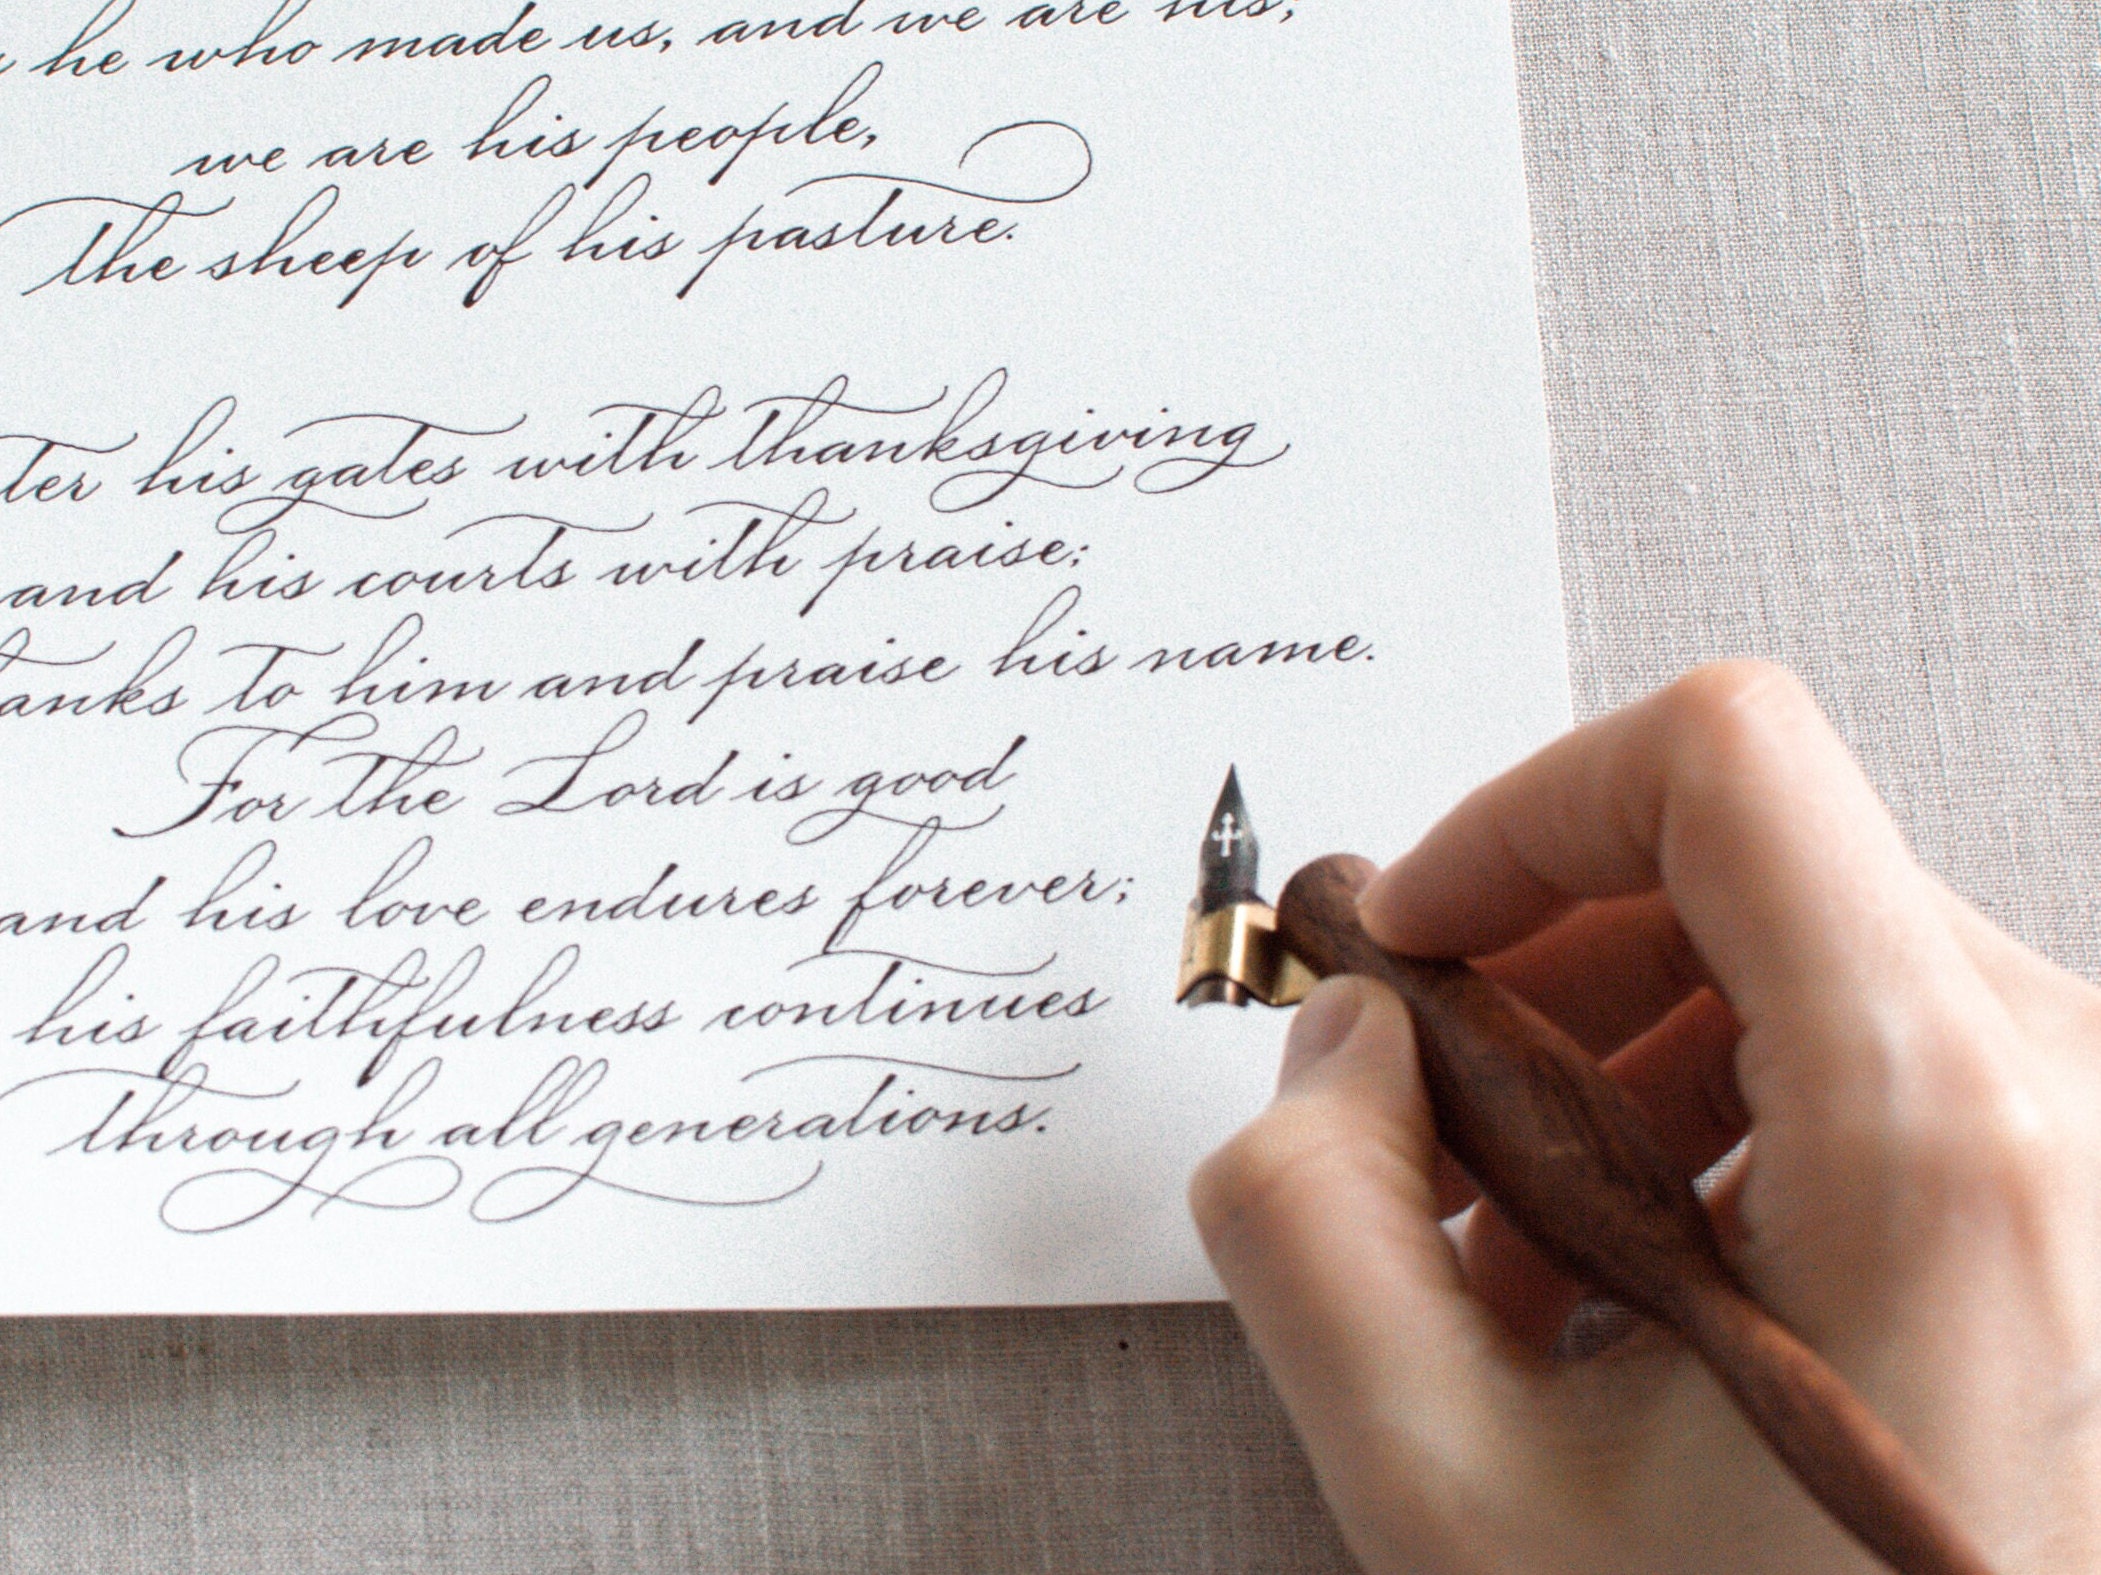 he who made us, and we are his;
we are his people,
the sheep of his pasture.
ter his gates with thanksgiving
and his courts with praise;
anks to him and praise his name.
For the Lord is good
and his love endures forever;
his faithfulness continues
through all generations.